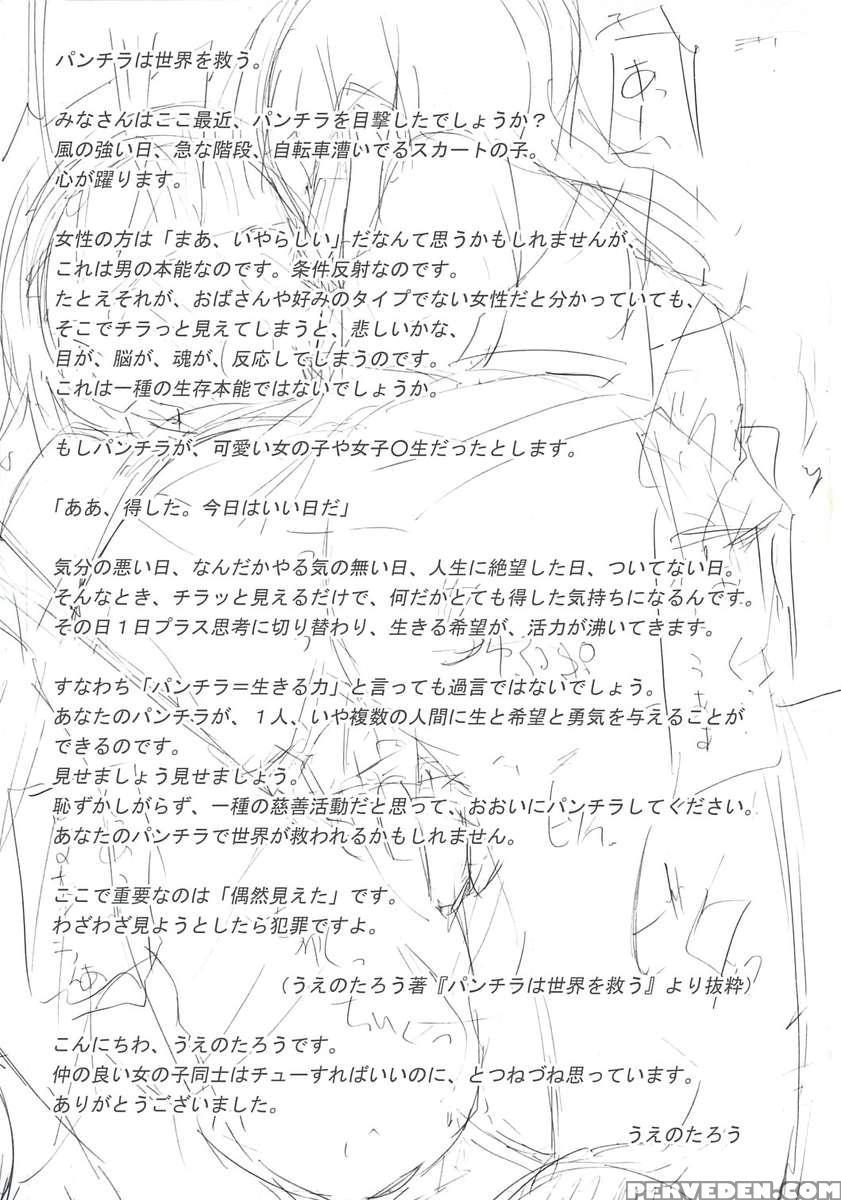 パンチラは世界を救う。
みなさんはここ最近、パンチラを目撃したでしょうか?
風の強い日、急な階段、自転車漕いでるスカートの子。
心が躍ります。
女性の方は「まあ、いやらしい」だなんて思うかもしれませんが、
これは男の本能なのです。条件反射なのです。
たとえそれが、おばさんや好みのタイプでない女性だと分かっていても、
そこでチラっと見えてしまうと、悲しいかな、
目が、脳が、魂が、反応してしまうのです。
これは一種の生存本能ではないでしょうか。
もしパンチラが、可愛い女の子や女子〇生だったとします。
「ああ、得した。今日はいい日だ」
気分の悪い日、なんだかやる気の無い日、人生に絶望した日、ついてない日。
そんなとき、チラッと見えるだけで、何だかとても得した気持ちになるんです。
その日1日プラス思考に切り替わり、生きる希望が、活力が沸いてきます。
すなわち「パンチラ=生きる力」と言っても過言ではないでしょう。
あなたのパンチラが、1人、いや複数の人間に生と希望と勇気を与えることが
できるのです。
見せましょう見せましょう。
恥ずかしがらず、一種の慈善活動だと思って、おおいにパンチラしてください。
あなたのパンチラで世界が救われるかもしれません。
ここで重要なのは「偶然見えた」です。
わざわざ見ようとしたら犯罪ですよ。
(うえのたろう著『パンチラは世界を救う』より抜粋)
こんにちわ、うえのたろうです。
仲の良い女の子同士はチューすればいいのに、とつねづね思っています。
ありがとうございました。
うえのたろう
PERVEDEN.COM